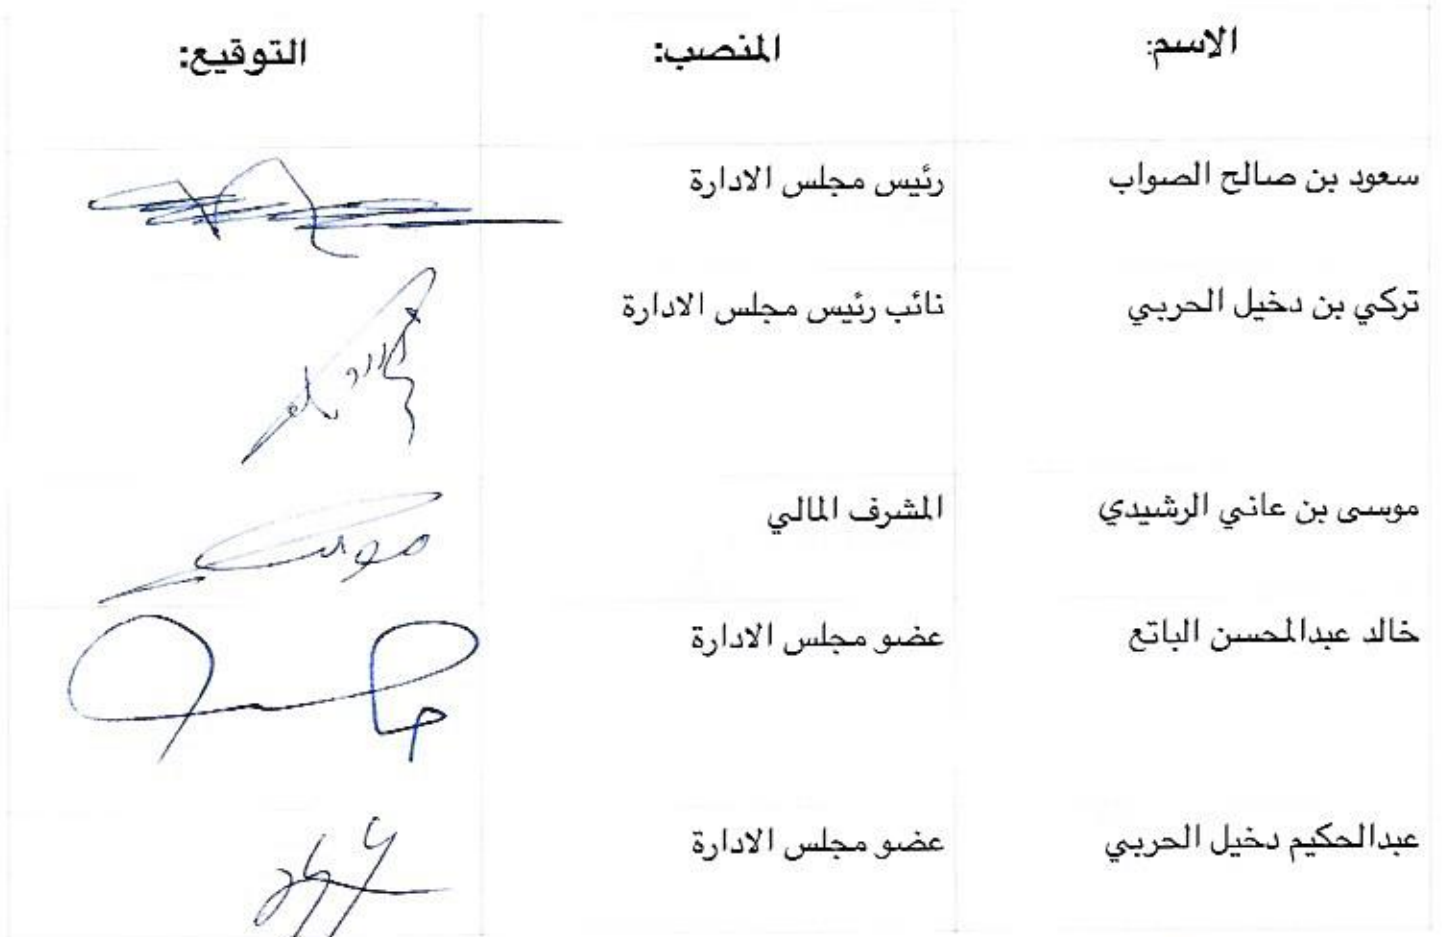 الاسم: المنصب: التوقيع:
سعود بن صالح الصواب رئيس مجلس الادارة
تركي بن دخيل الحربي نائب رئيس مجلس الادارة
موسى بن عاني الرشيدي المشرف المالي
خالد عبدالمحسن الباتع عضو مجلس الادارة
عبدالحكيم دخيل الحربي عضو مجلس الادارة